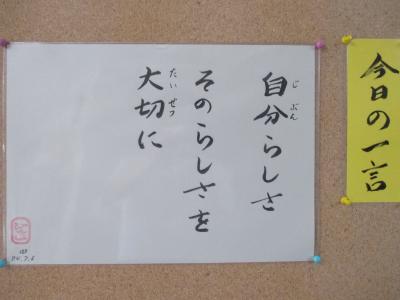 今日の一言
自分らしさ
じ ぶん
そのらしさを
大切に
たい せつ